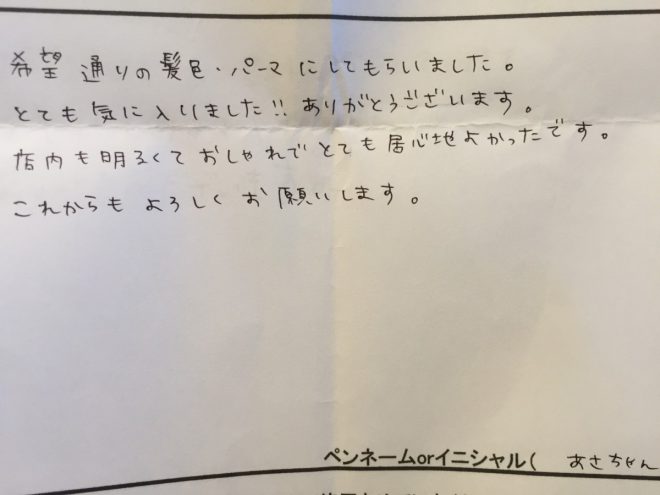 希望通りの髪色・パーマにしてもらいました。
とても気に入りました!!ありがとうございます。
店内も明るくておしゃれでとても居心地よかったです。
これからもよろしくお願いします。
ペンネームorイニシャル( あさちゃん